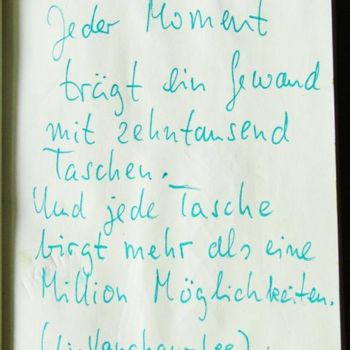 Jeder Moment
trägt ein Gewand
mit zehntausend
Taschen.
Und jede Tasche
birgt mehr als eine
Million Möglichkeiten.